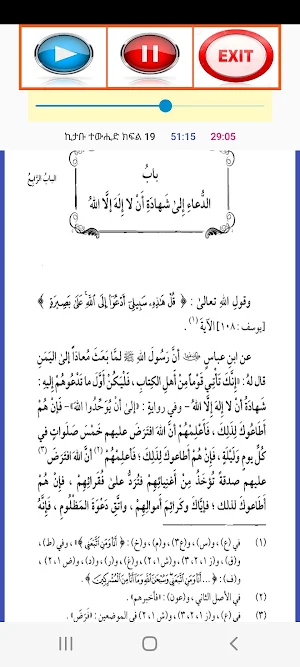 EXIT
ኪታቡ ተውሒድ ክፍል 19 51:15 29:05
الباب الرابع
بابُ
الدُّعاءِ إلىٰ شَهادَةِ أَنْ لا إلَهَ إلَّا اللهُ
وقولِ اللهِ تعالىٰ : ﴿ قُلْ هَٰذِهِۦ سَبِيلِىٓ أَدْعُوٓا۟ إِلَى ٱللَّهِ ۚ عَلَىٰ بَصِيرَةٍ ﴾
[يوسف : ١٠٨] الآيةَ (١).
عن ابنِ عباسٍ أنَّ رَسُولَ اللهِ ﷺ لمَّا بَعَثَ مُعاذاً إلى اليَمَنِ
قال لهُ : «إِنَّكَ تَأْتِي قَوْماً مِنْ أهلِ الكِتابِ ، فَلْيَكُنْ أوَّلَ ما تَدْعُوهُمْ إليهِ :
شَهادَةُ أَنْ لا إلَهَ إلَّا اللهُ – وفي روايةٍ : «إلى أنْ يُوَحِّدُوا اللهَ» – فإنْ هُمْ
أَطَاعُوكَ لِذَلِكَ ، فَأَعْلِمْهُمْ أنَّ اللهَ افتَرَضَ عليهم خَمْسَ صَلَواتٍ في
كُلِّ يومٍ وَلَيْلَةٍ، فَإِنْ هُمْ أطاعوكَ لذلكَ ؛ فأَعلِمْهُمْ (٢) أنَّ اللهَ افتَرَضَ (٣)
عليهم صدقةً تُؤْخَذُ مِنْ أغنِيائِهِمْ فتُرَدُّ علىٰ فُقَرائِهِمْ ، فإنْ هُمْ
أطاعوكَ لذلك ؛ فإيَّاكَ وكَرائِمَ أموالِهِمْ، واتَّقِ دَعْوَةَ المَظْلُومِ ، فإنَّهُ
(٢) في الأصل الثاني ، و(عون): «فأخبرهم».